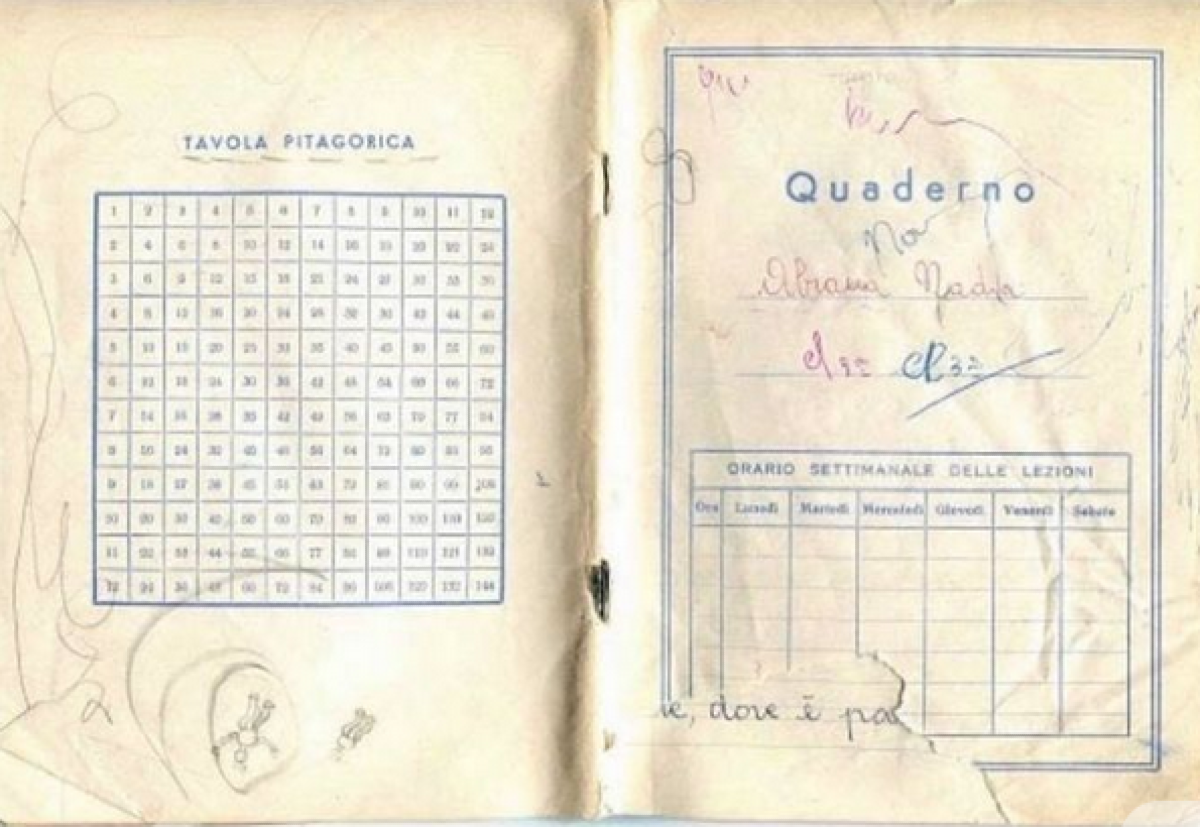 TAVOLA PITAGORICA
1 2 3 4 5 6 7 8 9 10 11 12
2 4 6 8 10 12 14 16 18 20 22 24
3 6 9 12 15 18 21 24 27 30 33 36
4 8 12 16 20 24 28 32 36 40 44 48
5 10 15 20 25 30 35 40 45 50 55 60
6 12 18 24 30 36 42 48 54 60 66 72
7 14 21 28 35 42 49 56 63 70 77 84
8 16 24 32 40 48 56 64 72 80 88 96
9 18 27 36 45 54 63 72 81 90 99 108
10 20 30 40 50 60 70 80 90 100 110 120
11 22 33 44 55 66 77 88 99 110 121 132
12 24 36 48 60 72 84 96 108 120 132 144
Quaderno
Nadia
Cl 3a
ORARIO SETTIMANALE DELLE LEZIONI
Ora Lunedì Martedì Mercoledì Giovedì Venerdì Sabato
dove è pa